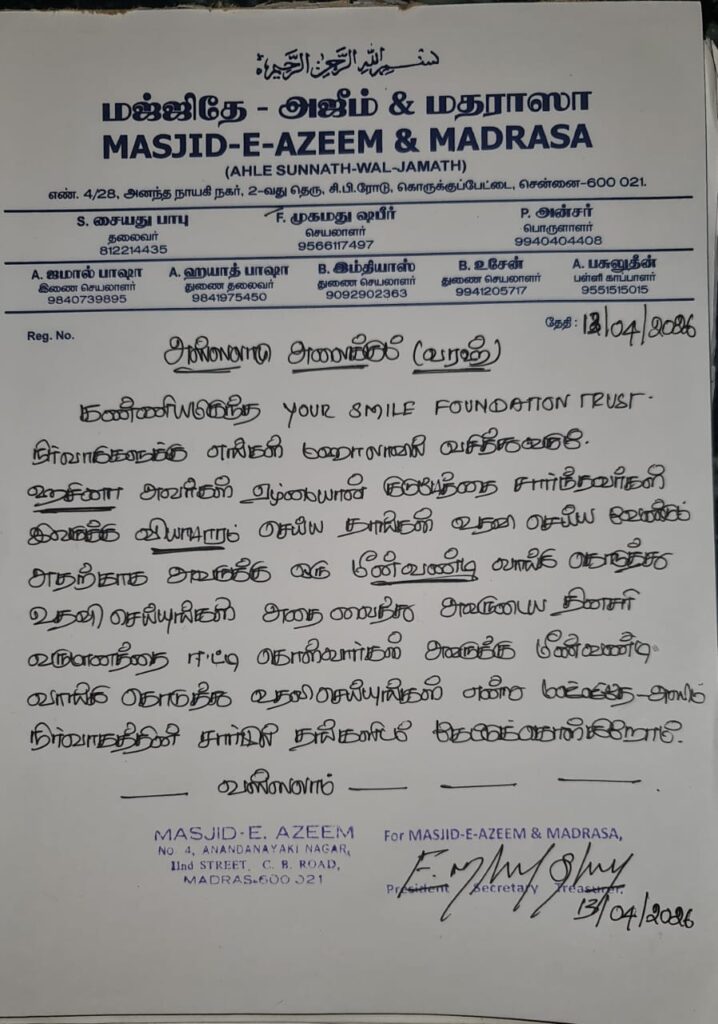 بسم الله الرحمن الرحيم
மஜ்ஜிதே - அஜீம் & மதராஸா
MASJID-E-AZEEM & MADRASA
(AHLE SUNNATH-WAL-JAMATH)
எண். 4/28, அனந்த நாயகி நகர், 2-வது தெரு, சி.பி.ரோடு, கொருக்குப்பேட்டை, சென்னை-600 021.
S. சையது பாபு F. முகமது ஷபீர் P. அன்சர்
தலைவர் செயலாளர் பொருளாளர்
812214435 9566117497 9940404408
A. ஜமால் பாஷா A. ஹயாத் பாஷா B. இம்தியாஸ் B. உசேன் A. பசுலுதீன்
இணை செயலாளர் துணை தலைவர் துணை செயலாளர் துணை செயலாளர் பள்ளி காப்பாளர்
9840739895 9841975450 9092902363 9941205717 9551515015
Reg. No. தேதி : 13/04/2026
அஸ்ஸலாமு அலைக்கும் (வரஹ்)
கண்ணியமிகுந்த YOUR SMILE FOUNDATION TRUST.
நிர்வாகிகளுக்கு எங்கள் மஹல்லாவில் வசித்துவரும்.
ஹசினா அவர்கள் ஏழ்மையான குடும்பத்தை சார்ந்தவர்கள்
இவருக்கு வியாபாரம் செய்ய தாங்கள் உதவி செய்ய வேண்டும்
அதற்காக அவருக்கு ஒரு மீன்வண்டி வாங்கி கொடுத்து
உதவி செய்யுங்கள் அதை வைத்து அவருடைய தினசரி
வருமானத்தை ஈட்டி கொள்வார்கள் அவருக்கு மீன்வண்டி
வாங்கி கொடுத்து உதவி செய்யுங்கள் என்று மஸ்ஜிதே-அஜீம்
நிர்வாகத்தின் சார்பில் தங்களிடம் கேட்டுக்கொள்கிறோம்.
வஸ்ஸலாம்
MASJID-E. AZEEM
NO. 4, ANANDANAYAKI NAGAR,
IInd STREET, C. B. ROAD,
MADRAS-600 021
For MASJID-E-AZEEM & MADRASA,
President Secretary Treasurer.
13/04/2026